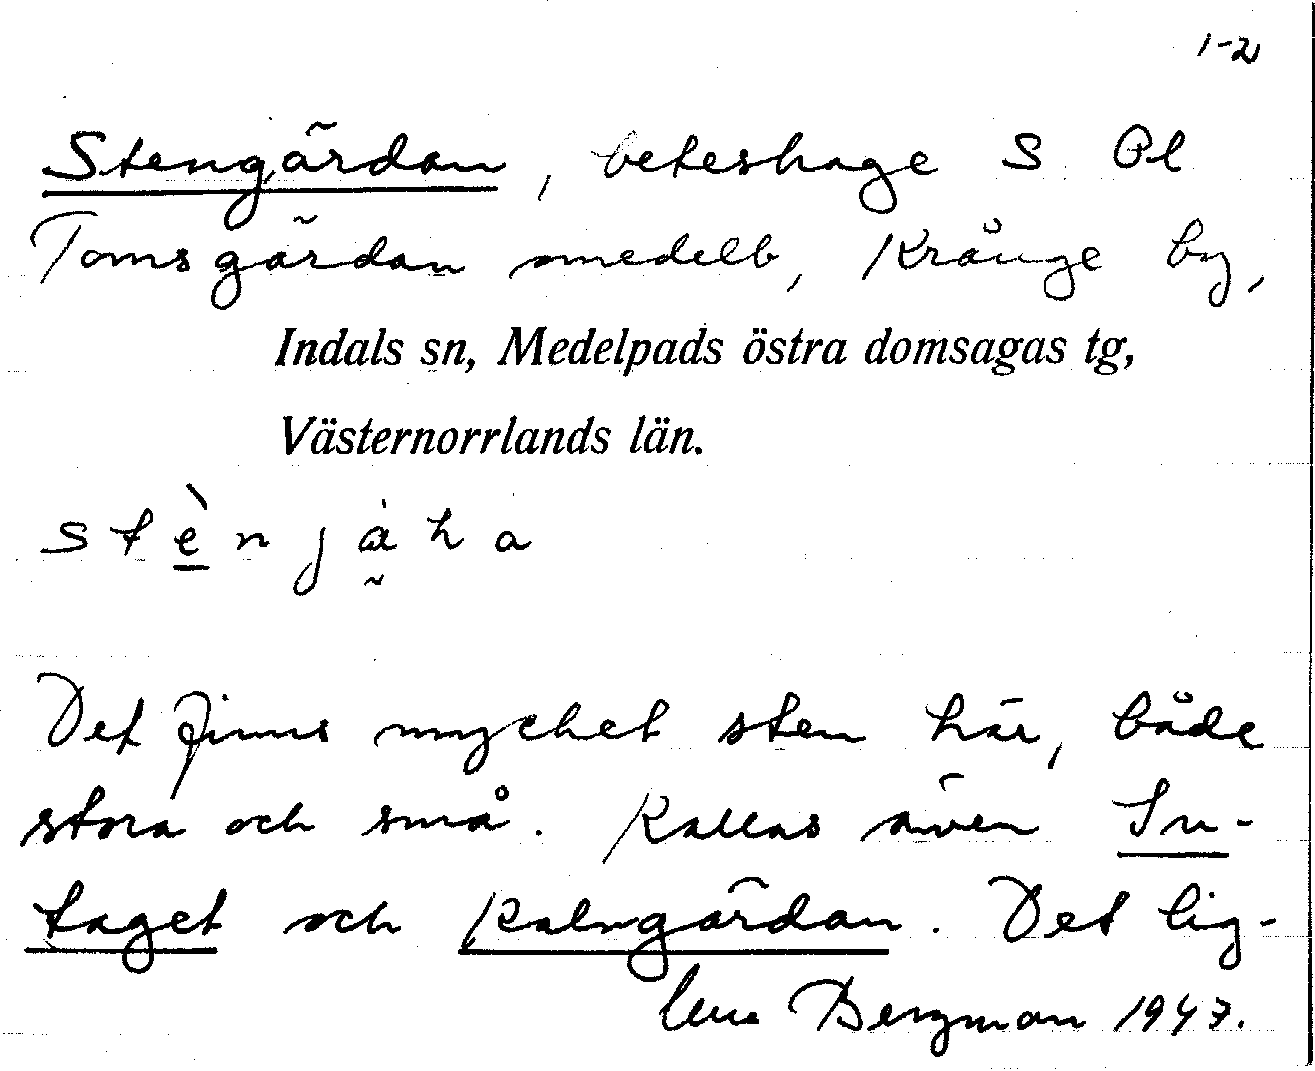 1-2
Stengärdan, beteshage S Pl
Tomsgärdan smedelb, Krånge by,
Indals sn, Medelpads östra domsagas tg,
Västernorrlands län.
stènjäha
Det finns mycket sten här, både
stora och små. Kallas även In-
taget och Kalvgärdan. Det lig-
Bergman 1947.